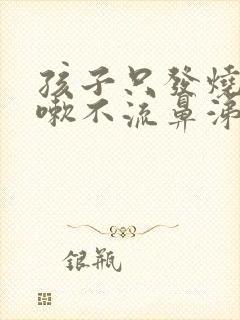 孩子只發燒
嗽不流鼻涕
銀瓶